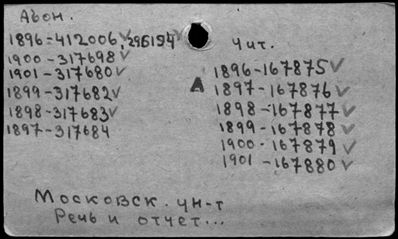 Абон.
1896-412006, 296194
1900-317698
1901-317680
1899-317682
1898-317683
1897-317684
Чит.
1896-167875
А 1897-167876
1898-167877
1899-167878
1900-167879
1901-167880
Московск. ун-т
Речь и отчет...